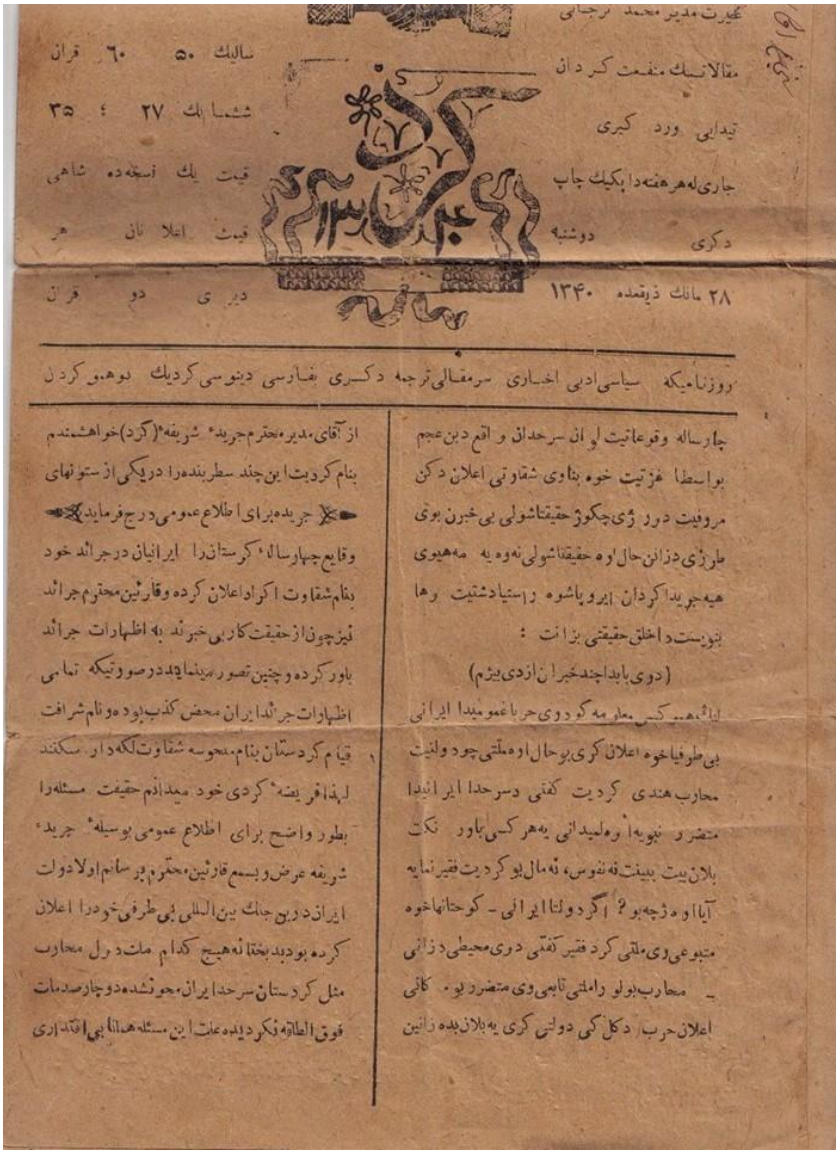 غیرت مدیر محمد ترجانی
مقالاتسك منفعت کردان
تیدابی ورد کبری
جاری له هر هفته دا یکیك چاپ
دکری دوشنبه
۲۸ مانك ذیقعده ۱۳۴۰
کرد
۱۳۴۰
سالیك ۵۰ ۶۰ قران
ششمانك ۲۷ ؛ ۳۵
قیمت یك نسخه ده شاهی
قیمت اعلانان هر
دیری دو قران
روزنامیکه سیاسی ادبی اخباری سرمقالی ترجمه دکری بفارسی دینوسی کردیك بوهمو کردن
چارساله وقوعاتیت لو ان سرحدان واقع دبن عجم
بواسطا غزتیت خوه بناوی شقاوتی اعلان دکن
مروفیت دور ژی چکوژ حقیقتا شولی بی خبرن بوتی
طرزی دزانن حال اوه حقیقتا شولی نه وه یه مه هیوی
هیه جریدا کردان ایرو پاشوه راستیا دشتیت وها
بنویست داخلق حقیقتی بزانت :
(دوی بابدا چند خبران ازدی بیژم)
همو کس معلومه کو دوی حربا عمومیدا ایرانی
بی طرفیا خوه اعلان کری بو حال اوه ملتی چو دولتیت
محارب هندی کردیت کفتی دسرحدا ایرانیدا
متضرر نبویه اوه لمیدانی یه هر کسی باور نکت
بلان بیت ببینت نه نفوس، نه مال بو کردیت فقیر نمایه
آیا اوه ژچه بو ؟ اگر دولتا ایرانی - کوحتانها خوه
متبوعی وی ملتی کرد فقیر کفتی دوی محیطی دزانی
- محارب بولو را ملتی تابعی وی متضرر بو، کانی
اعلان حرب دکل کی دولتی کری یه بلان بده زانین
از آقای مدیر محترم جریدهٔ شریفهٔ (کرد) خواهشمندم
بنام کردیت این چند سطر بنده را در یکی از ستونهای
جریده برای اطلاع عمومی درج فرماید
وقایع چهارسالهٔ کرستان را ایرانیان در جرائد خود
بنام شقاوت اکراد اعلان کرده وقارئین محترم جرائد
نیز چون از حقیقت کار بی خبرند به اظهارات جرائد
باور کرده و چنین تصور مینمایند درصورتیکه تمامی
اظهارات جرائد ایران محض کذب بوده و نام شرافت
قیام کردستان بنام منحوسه شقاوت لکه دار میکنند
لهذا فریضهٔ کردی خود میدانم حقیقت مسئله را
بطور واضح برای اطلاع عمومی بوسیلهٔ جریدهٔ
شریفه عرض و بسمع قارئین محترم برسانم اولا دولت
ایران درین جنك بین المللی بی طرفی خودرا اعلان
کرده بود بدبختانه هیچ کدام ملت دول محارب
مثل کردستان سرحد ایران محو نشده دوچار صدمات
فوق الطاقه نکردیده علت این مسئله همانا بی اقتداری